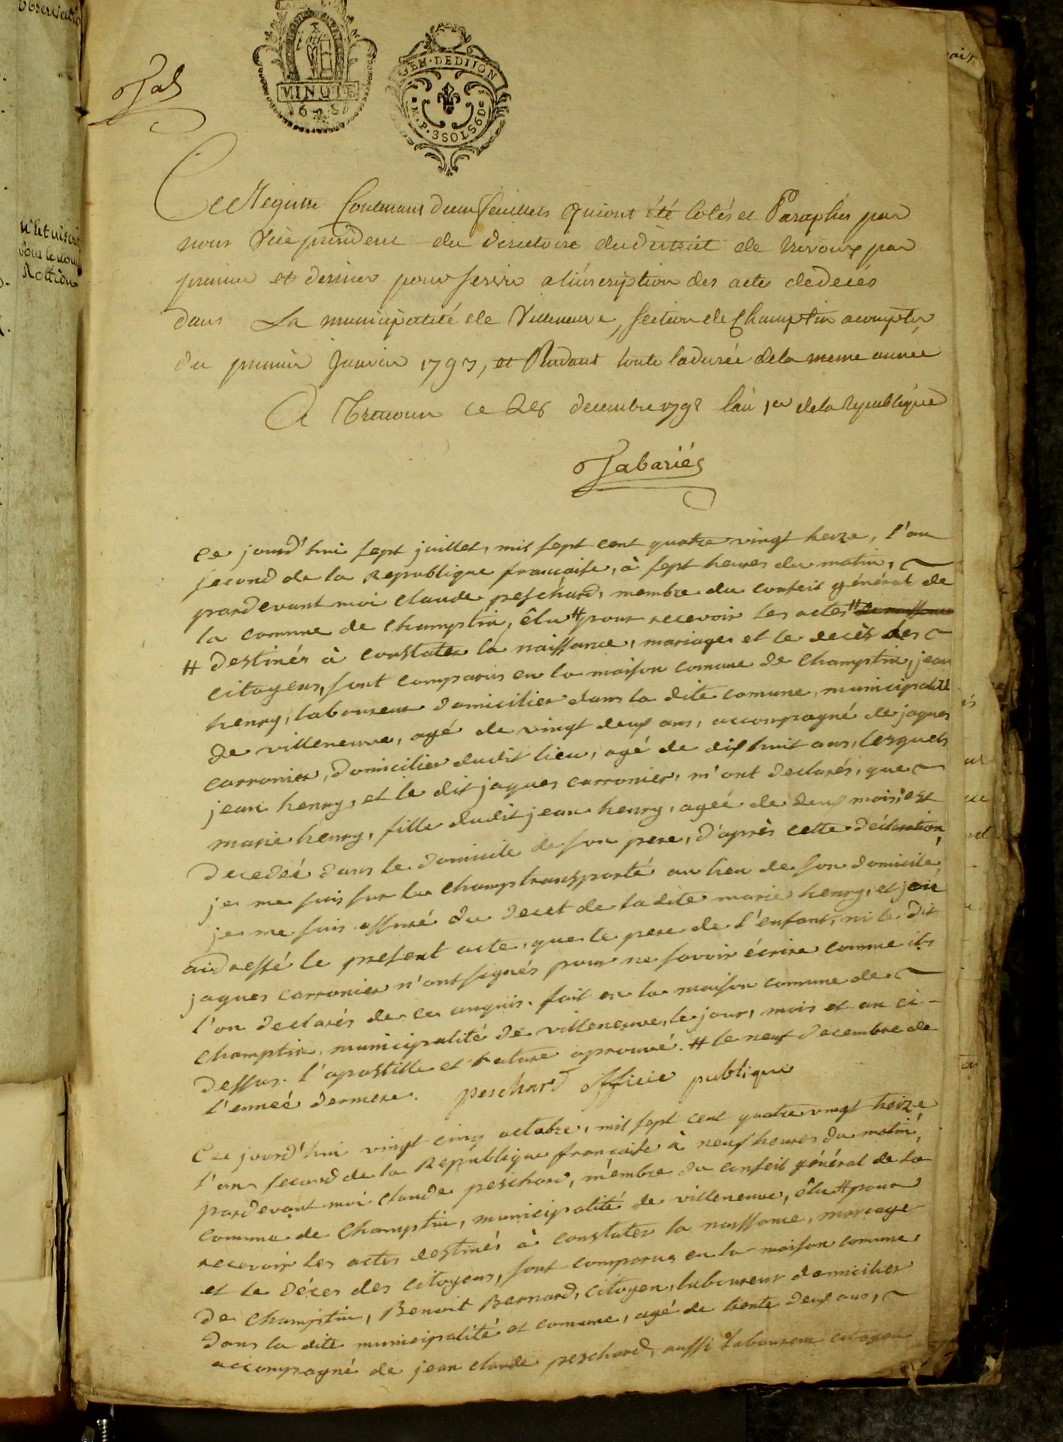 observation
MINUTE
GEN. DE DIJON
P. 3 SOLS 6 D
Jab
Ce Registre Contenant deux feuillets qui ont été cotés et Paraphés par
nous Vice président du directoire du district de trevoux par
premier et dernier pour servir a l'inscription des actes de decès
dans La municipalité de Villeneuve, section de Champtin a compter
du premier Janvier 1793, et Pendant toute la durée de la meme année
A Trevoux ce 26 decembre 1792 l'an 1er de la Republique
Jabariés
Ce jourd'hui sept juillet, mil sept cent quatre vingt treize, l'an
second de la Republique francaise, à sept heures du matin,
pardevant moi Claude peschard, membre du conseil général de
la comune de Champtin, élu # pour recevoir les actes #
# destinés à constater la naissance, mariages et le decès des
citoyens, sont comparus en la maison comune de Champtin, jean
henry, laboureur domicilier dans la dite comune, municipalité
de villeneuve, agé de vingt deux ans, accompagné de jaques
carronier, domicilier dudit lieu, agé de dix huit ans, lesquels
jean henry, et le dit jaques carronier, m'ont declarés, que
marie henry, fille dudit jean henry, agée de deux mois, est
decedée dans le domicile de son pere, d'après cette déclaration,
je me suis sur le champ transporté au lieu de son domicile,
je me suis assuré du deces de ladite marie henry, et j'ai
dressé le present acte, que le pere de l'enfant, ni le dit
jaques carronier n'ont signés pour ne savoir écrire comme ils
l'on declarés de ce enquis. fait en la maison comune de
Champtin, municipalité de villeneuve, le jour, mois et an ci-
dessus. l'apostille et rature aprouvé. # le neuf decembre de
l'année derniere. peschard officié publique
Ce jourd'hui vingt cinq octobre, mil sept cent quatre vingt treize
l'an second de la Republique francaise à neuf heures du matin,
pardevant moi Claude peschard, membre du conseil général de la
comune de Champtin, municipalité de villeneuve, élu # pour
recevoir les actes destinés à constater la naissance, mariage
et le déces des citoyens, sont comparus en la maison comune
de Champtin, Benoit Bernard, citoyen, laboureur domicilier
dans la dite municipalité et comune, agé de trente deux ans,
accompagné de jean claude peschard, aussi Laboureur citoyen